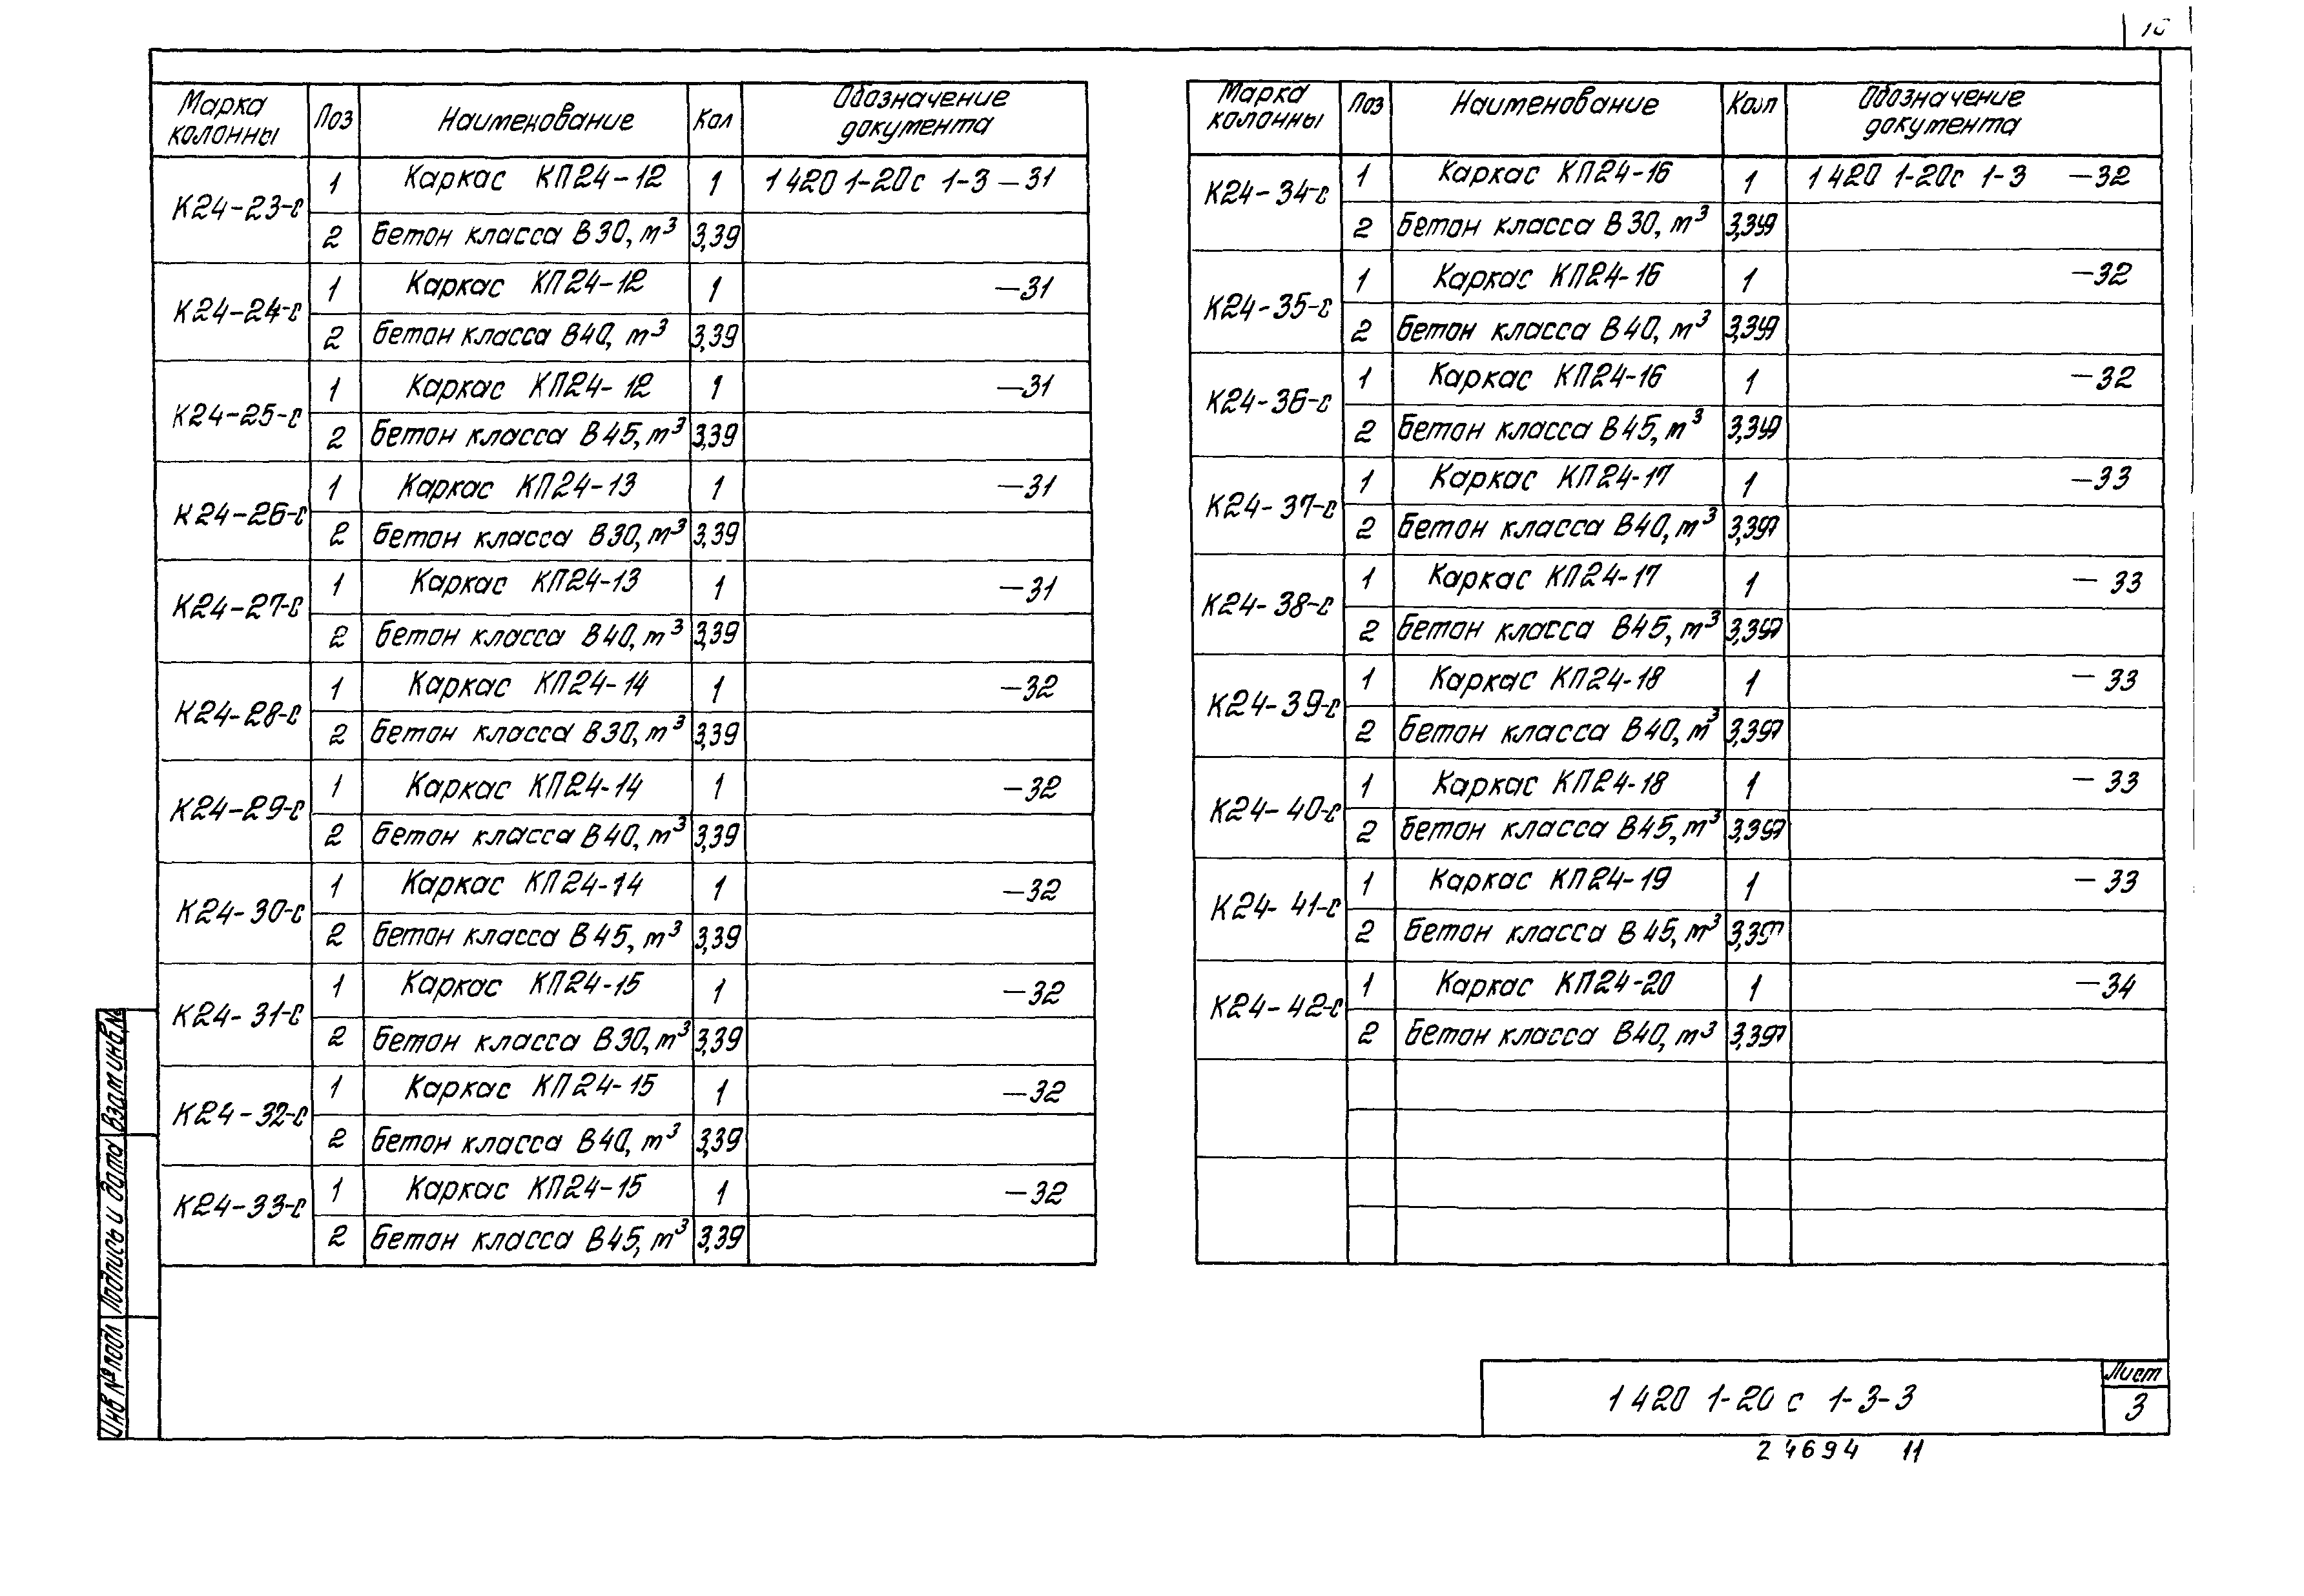 Марка колонны Поз Наименование Кол Обозначение документа
К24-23-с 1 Каркас КП24-12 1 1 420 1-20с 1-3 -31
2 Бетон класса В30, м³ 3,39
К24-24-с 1 Каркас КП24-12 1 -31
2 Бетон класса В40, м³ 3,39
К24-25-с 1 Каркас КП24-12 1 -31
2 Бетон класса В45, м³ 3,39
К24-26-с 1 Каркас КП24-13 1 -31
2 Бетон класса В30, м³ 3,39
К24-27-с 1 Каркас КП24-13 1 -31
2 Бетон класса В40, м³ 3,39
К24-28-с 1 Каркас КП24-14 1 -32
2 Бетон класса В30, м³ 3,39
К24-29-с 1 Каркас КП24-14 1 -32
2 Бетон класса В40, м³ 3,39
К24-30-с 1 Каркас КП24-14 1 -32
2 Бетон класса В45, м³ 3,39
К24-31-с 1 Каркас КП24-15 1 -32
2 Бетон класса В30, м³ 3,39
К24-32-с 1 Каркас КП24-15 1 -32
2 Бетон класса В40, м³ 3,39
К24-33-с 1 Каркас КП24-15 1 -32
2 Бетон класса В45, м³ 3,39
Марка колонны Поз Наименование Кол Обозначение документа
К24-34-с 1 Каркас КП24-16 1 1 420 1-20с 1-3 -32
2 Бетон класса В30, м³
К24-35-с 1 Каркас КП24-16 1 -32
2 Бетон класса В40, м³
К24-36-с 1 Каркас КП24-16 1 -32
2 Бетон класса В45, м³
К24-37-с 1 Каркас КП24-17 1 -33
2 Бетон класса В40, м³
К24-38-с 1 Каркас КП24-17 1 -33
2 Бетон класса В45, м³
К24-39-с 1 Каркас КП24-18 1 -33
2 Бетон класса В40, м³
К24-40-с 1 Каркас КП24-18 1 -33
2 Бетон класса В45, м³
К24-41-с 1 Каркас КП24-19 1 -33
2 Бетон класса В45, м³
К24-42-с 1 Каркас КП24-20 1 -34
2 Бетон класса В40, м³
Инв № подл Подпись и дата Взам инв.№
1 420 1-20 с 1-3-3
Лист
3
24694 11